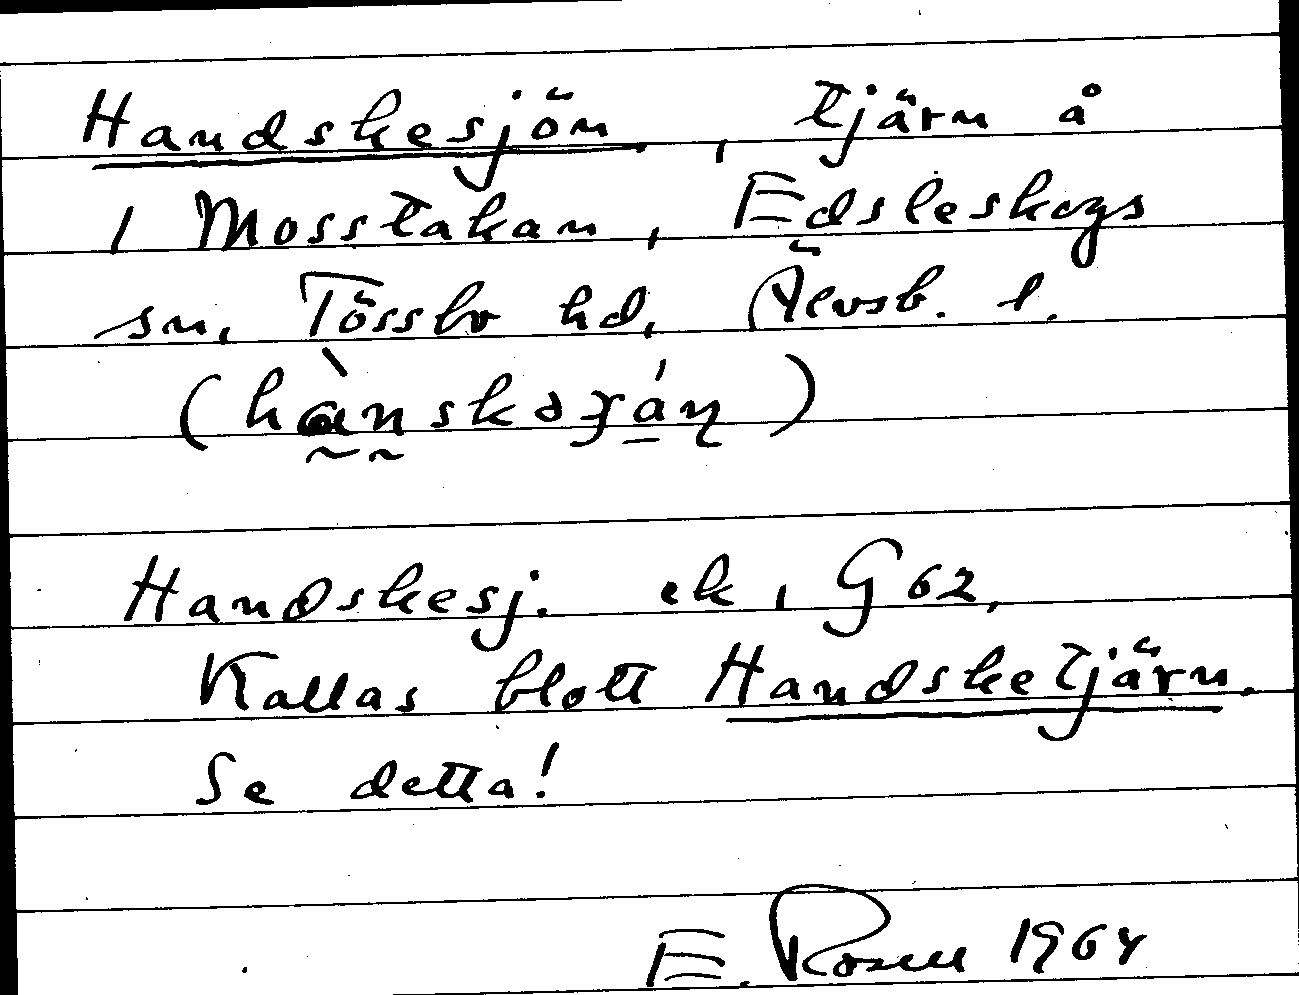 Handskesjön, tjärn å
1 Mosstakan, Edsleskogs
sn, Tössbo hd, Älvsb. l.
(hànskəɟá̠ɳ)
Handskesj. ek, G 62,
Kallas blott Handsketjärn.
Se detta!
E. Rosell 1964